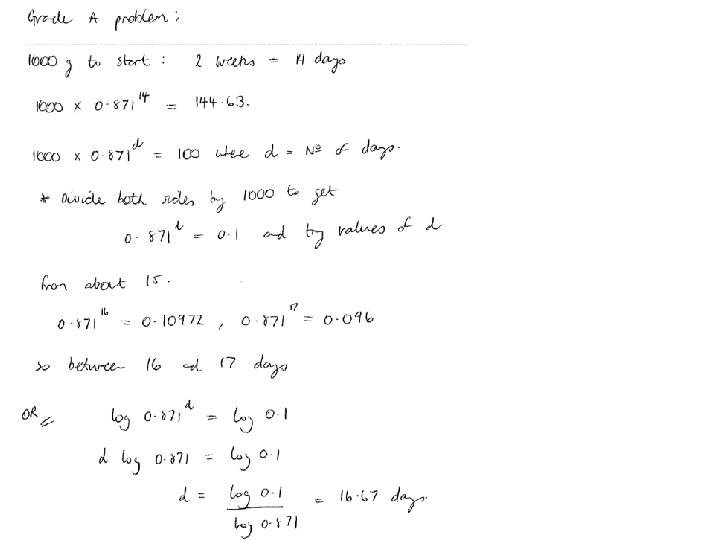 Grade A problem:
1000 g to start: 2 weeks = 14 days
1000 x 0.871^14 = 144.63.
1000 x 0.871^d = 100 where d = Nº of days.
* Divide both sides by 1000 to get
0.871^d = 0.1 and try values of d
from about 15.
0.871^16 = 0.10972, 0.871^17 = 0.096
so between 16 and 17 days
OR log 0.871^d = log 0.1
d log 0.871 = log 0.1
d = log 0.1 / log 0.871 = 16.67 days.